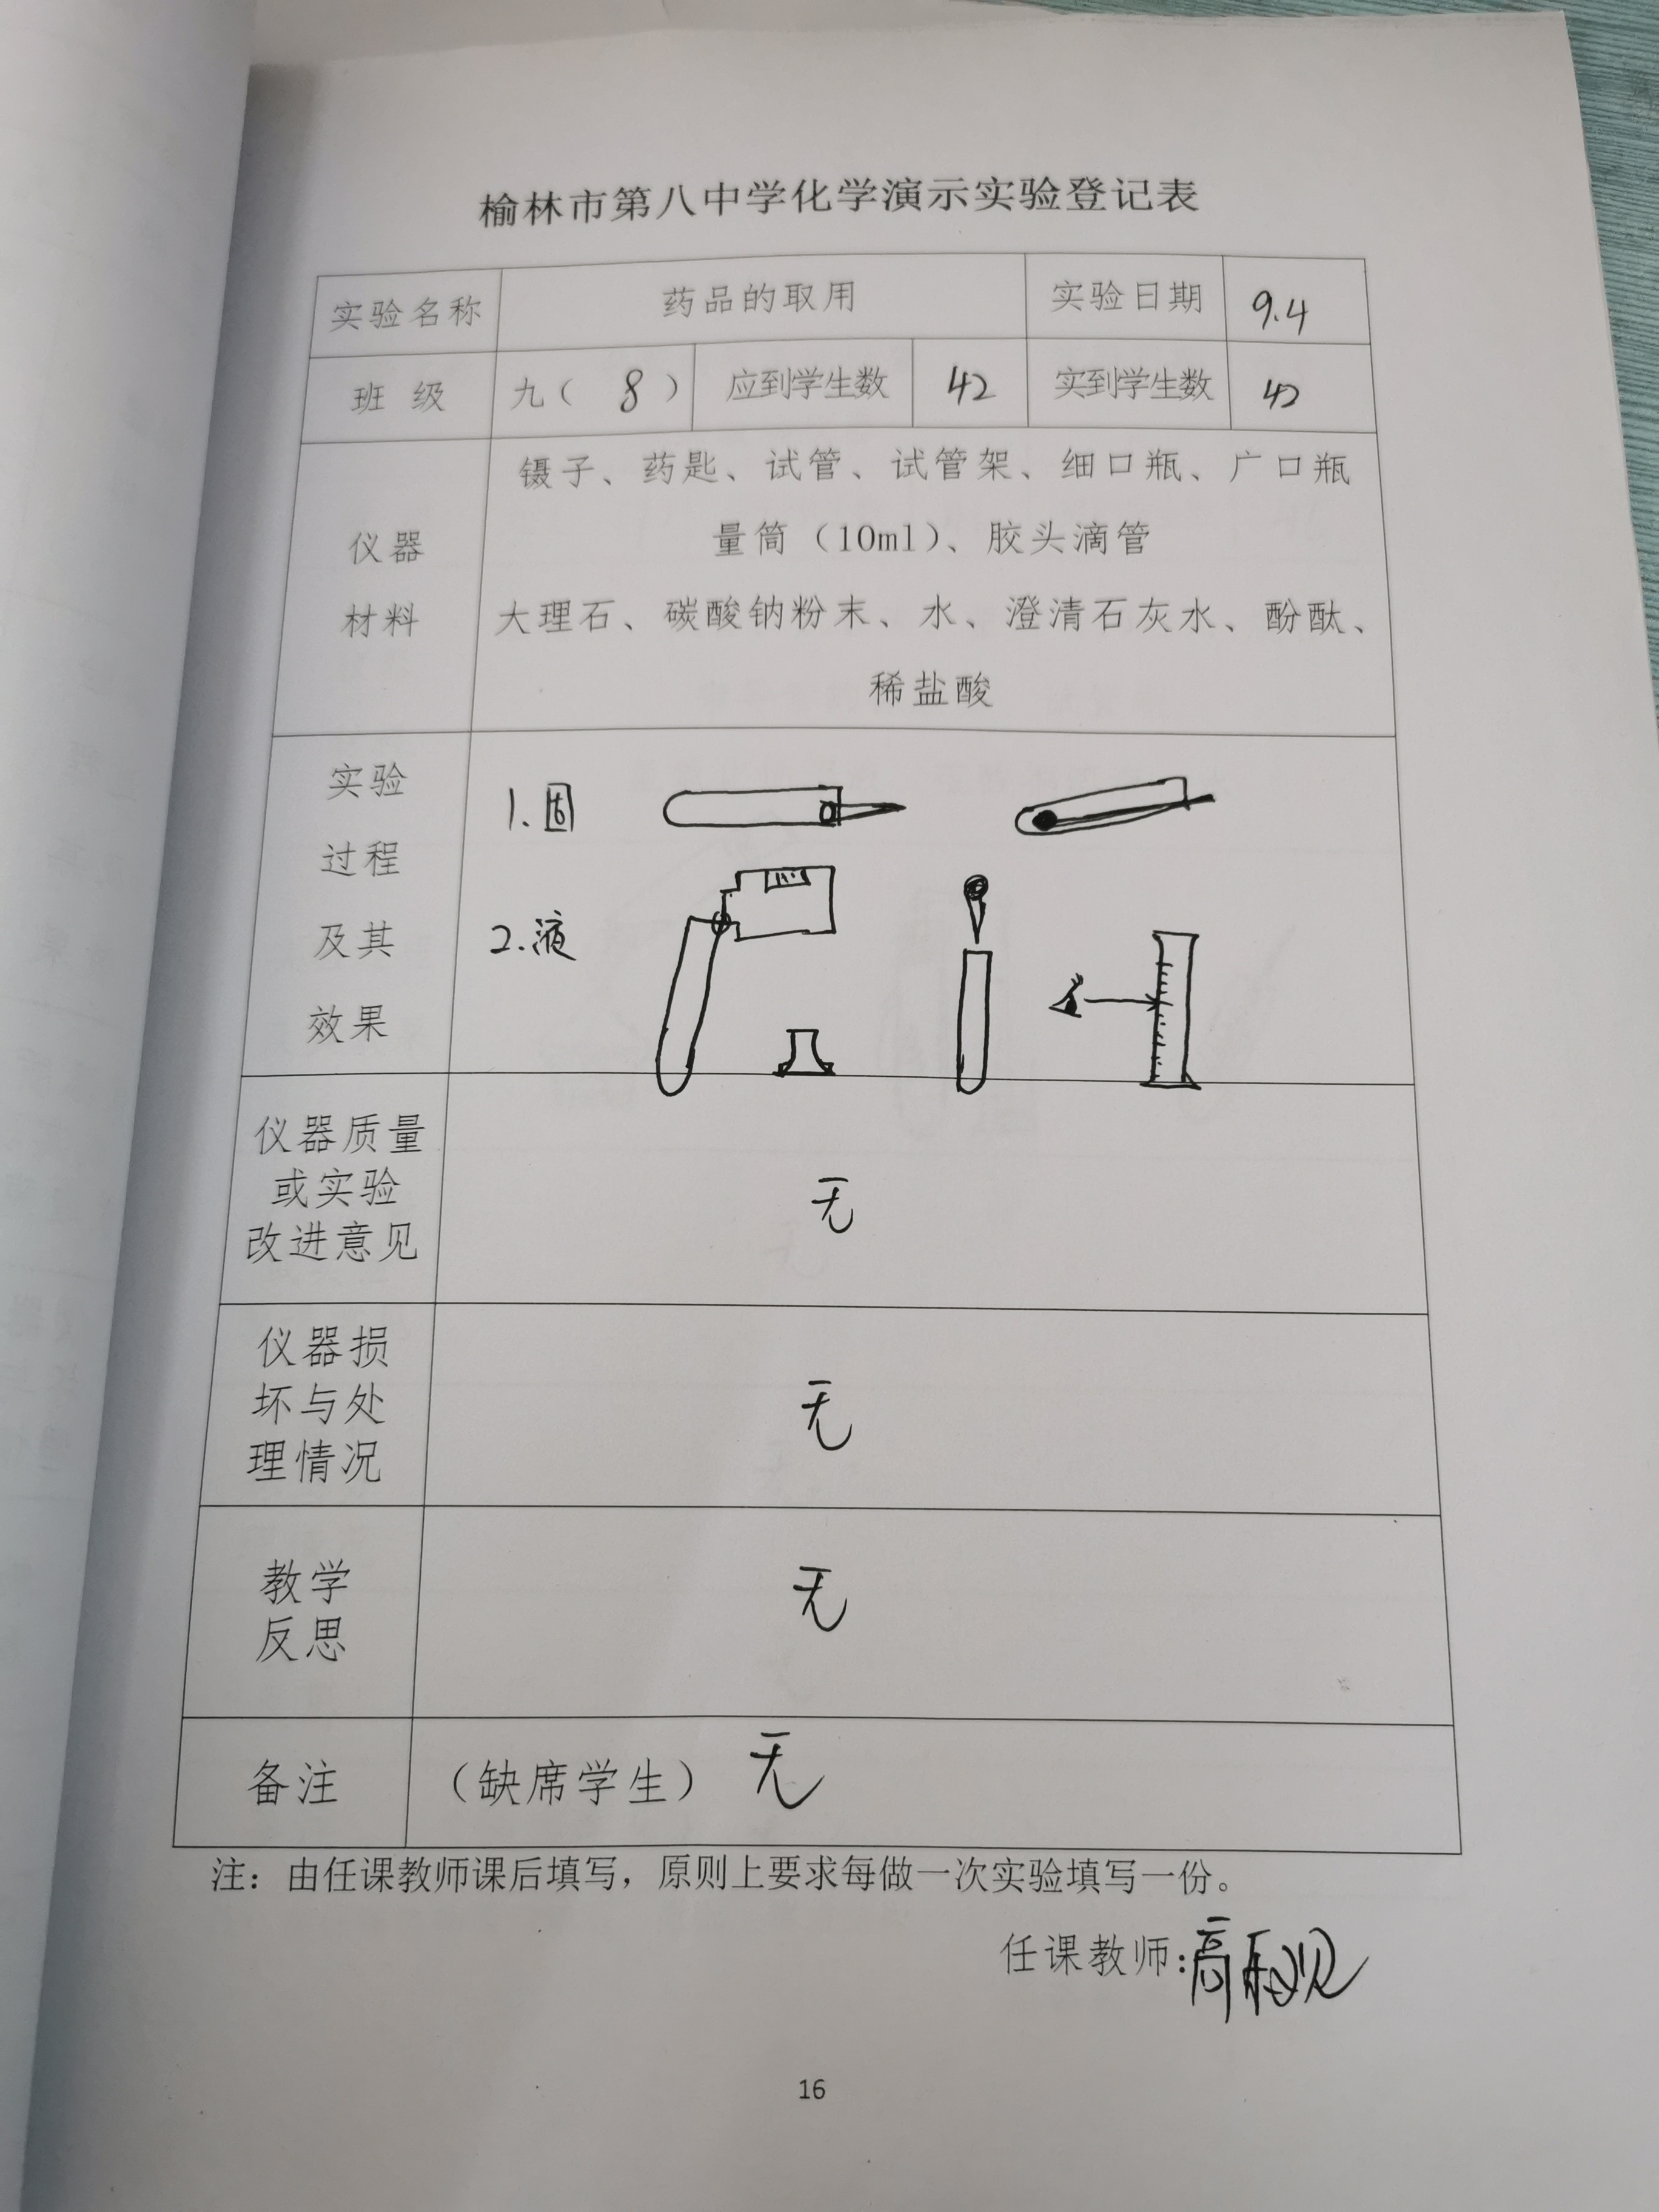 榆林市第八中学化学演示实验登记表
实验名称 药品的取用 实验日期 9.4
班 级 九（ 8 ） 应到学生数 42 实到学生数 42
镊子、药匙、试管、试管架、细口瓶、广口瓶
仪器
量筒（10ml）、胶头滴管
材料
大理石、碳酸钠粉末、水、澄清石灰水、酚酞、
稀盐酸
实验
过程
及其
效果
1.固
2.液
仪器质量
或实验
改进意见
无
仪器损
坏与处
理情况
无
教学
反思
无
备注 （缺席学生） 无
注：由任课教师课后填写，原则上要求每做一次实验填写一份。
任课教师：高
16